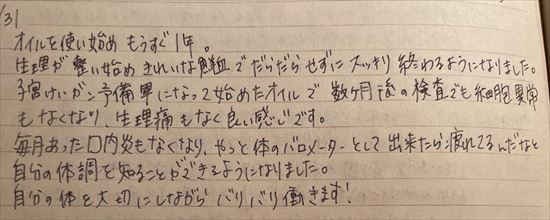 /31
オイルを使い始めもうすぐ1年。
生理が整い始めきれいな鮮血でだらだらせずにスッキリ終わるようになりました。
子宮けいガン予備軍になって始めたオイルで数ヶ月後の検査でも細胞異常
もなくなり、生理痛もなく良い感じです。
毎月あった口内炎もなくなり、やっと体のバロメーターとして出来たら疲れてるんだなと
自分の体調を知ることができるようになりました。
自分の体を大切にしながらバリバリ働きます!